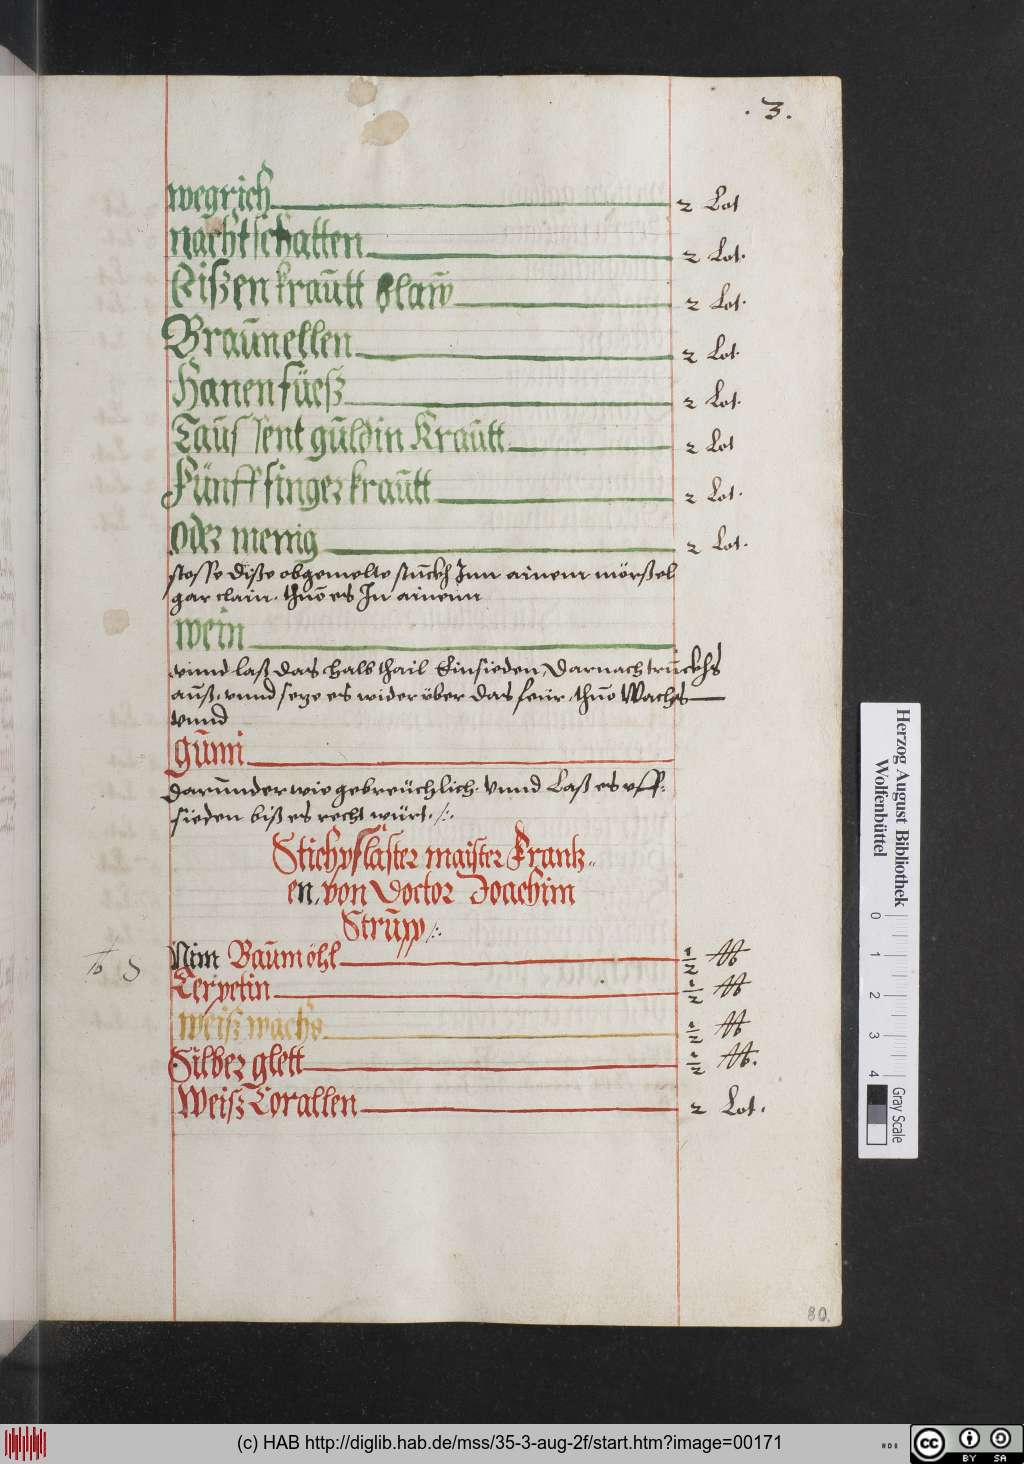 . 3.
wegrich 2 Lot
nachtschatten 2 Lot.
Eißenkraũtt blaw 2 Lot.
Braũnellen 2 Lot.
Hanenfüeß 2 Lot.
Taũssent gũldin Kraũtt 2 Lot
Fünfffinger kraũtt 2 Lot.
oder 2 Lot.
stosse diße obgemelte stũckh Jnn ainem mörßel
gar clain. thuo es Jn ainem
wein
vnnd laß das halb thail Einsieden, Darnach trũckhs
auß, vnnd seze es wider über das feür, thuo Wachs
vnnd
gũmi
darũnder wie gebreüchlich. Vnnd Laß es uff
sieden biß es recht würt. ./.
Stichpflaster maister Frantz
en, von Doctor Joachim
Strũpp ./.
Nim Baũmöhl ½ ℔
Terpetin ½ ℔
Weiß wachs ½ ℔
Silber glett ½ ℔.
Weiß Corallen 2 Lot.
80.
Herzog August Bibliothek
Wolfenbüttel
0 1 2 3 4
Gray Scale
(c) HAB http://diglib.hab.de/mss/35-3-aug-2f/start.htm?image=00171
cc BY SA